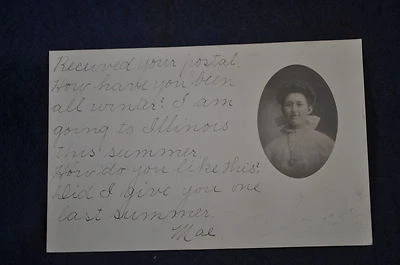 Received your postal.
How have you been
all winter? I am
going to Illinois
this summer
How do you like this?
Did I give you one
last summer
Mae